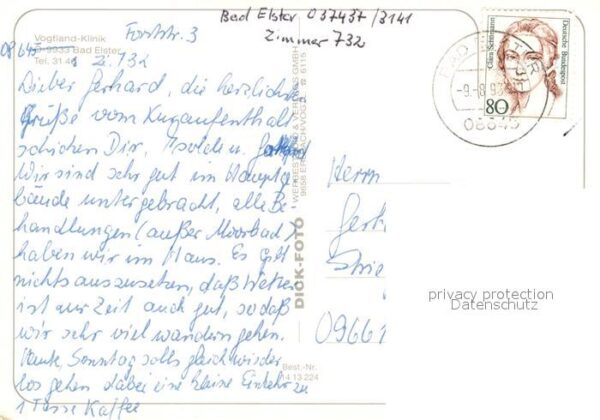 Bad Elster 037437/3141
Zimmer 732
Vogtland-Klinik Forststr. 3
08645 9933 Bad Elster
Tel. 31 Zi. 732
Lieber Gerhard, die herzlichsten
Grüße vom Kuraufenthalt
schicken Dir, Isolde u.
Wir sind sehr gut im Hauptge
bäude untergebracht, alle Be
handlungen (außer Moorbad)
haben wir im Haus. Es gibt
nichts auszusetzen, daß Wetter
ist zur Zeit auch gut, sodaß
wir sehr viel wandern gehen.
Heute, Sonntag solls gleich wieder
los gehen dabei eine kleine Einkehr zu
1 Tasse Kaffee
DICK-FOTO
Best.-Nr.
14 13 224
Clara Schumann
Deutsche Bundespost
80
-9.-8.93
08645
Herrn
09661
privacy protection
Datenschutz